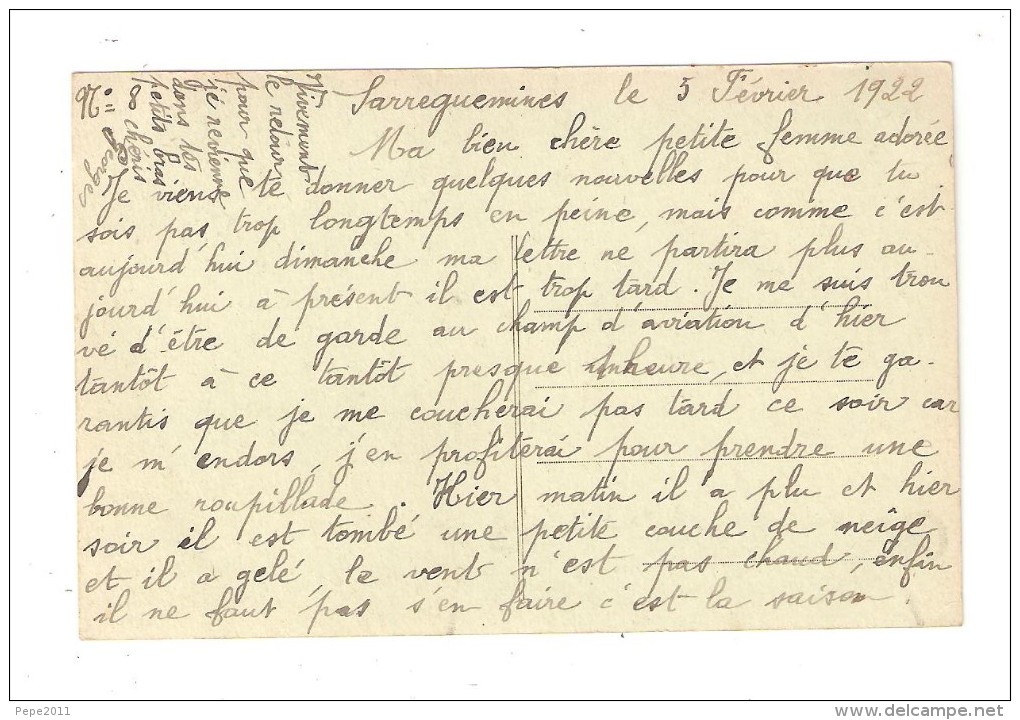 Sarreguemines le 5 Février 1922
Ma bien chère petite femme adorée
Je viens te donner quelques nouvelles pour que tu
sois pas trop longtemps en peine, mais comme c'est
aujourd'hui dimanche ma lettre ne partira plus au-
jourd'hui à présent il est trop tard. Je me suis trou
vé d'être de garde au champ d'aviation d'hier
tantôt à ce tantôt presque 1 heure, et je te ga-
rantis que je me coucherai pas tard ce soir car
je m'endors, j'en profiterai pour prendre une
bonne roupillade. Hier matin il a plu et hier
soir il est tombé une petite couche de neîge
et il a gelé, le vent n'est pas chaud, enfin
il ne faut pas s'en faire c'est la saison.
Vivement
le retour
pour que
je revienne
dans tes
petits bras
chéris
Georges
No=
Pepe2011
www.delcampe.net